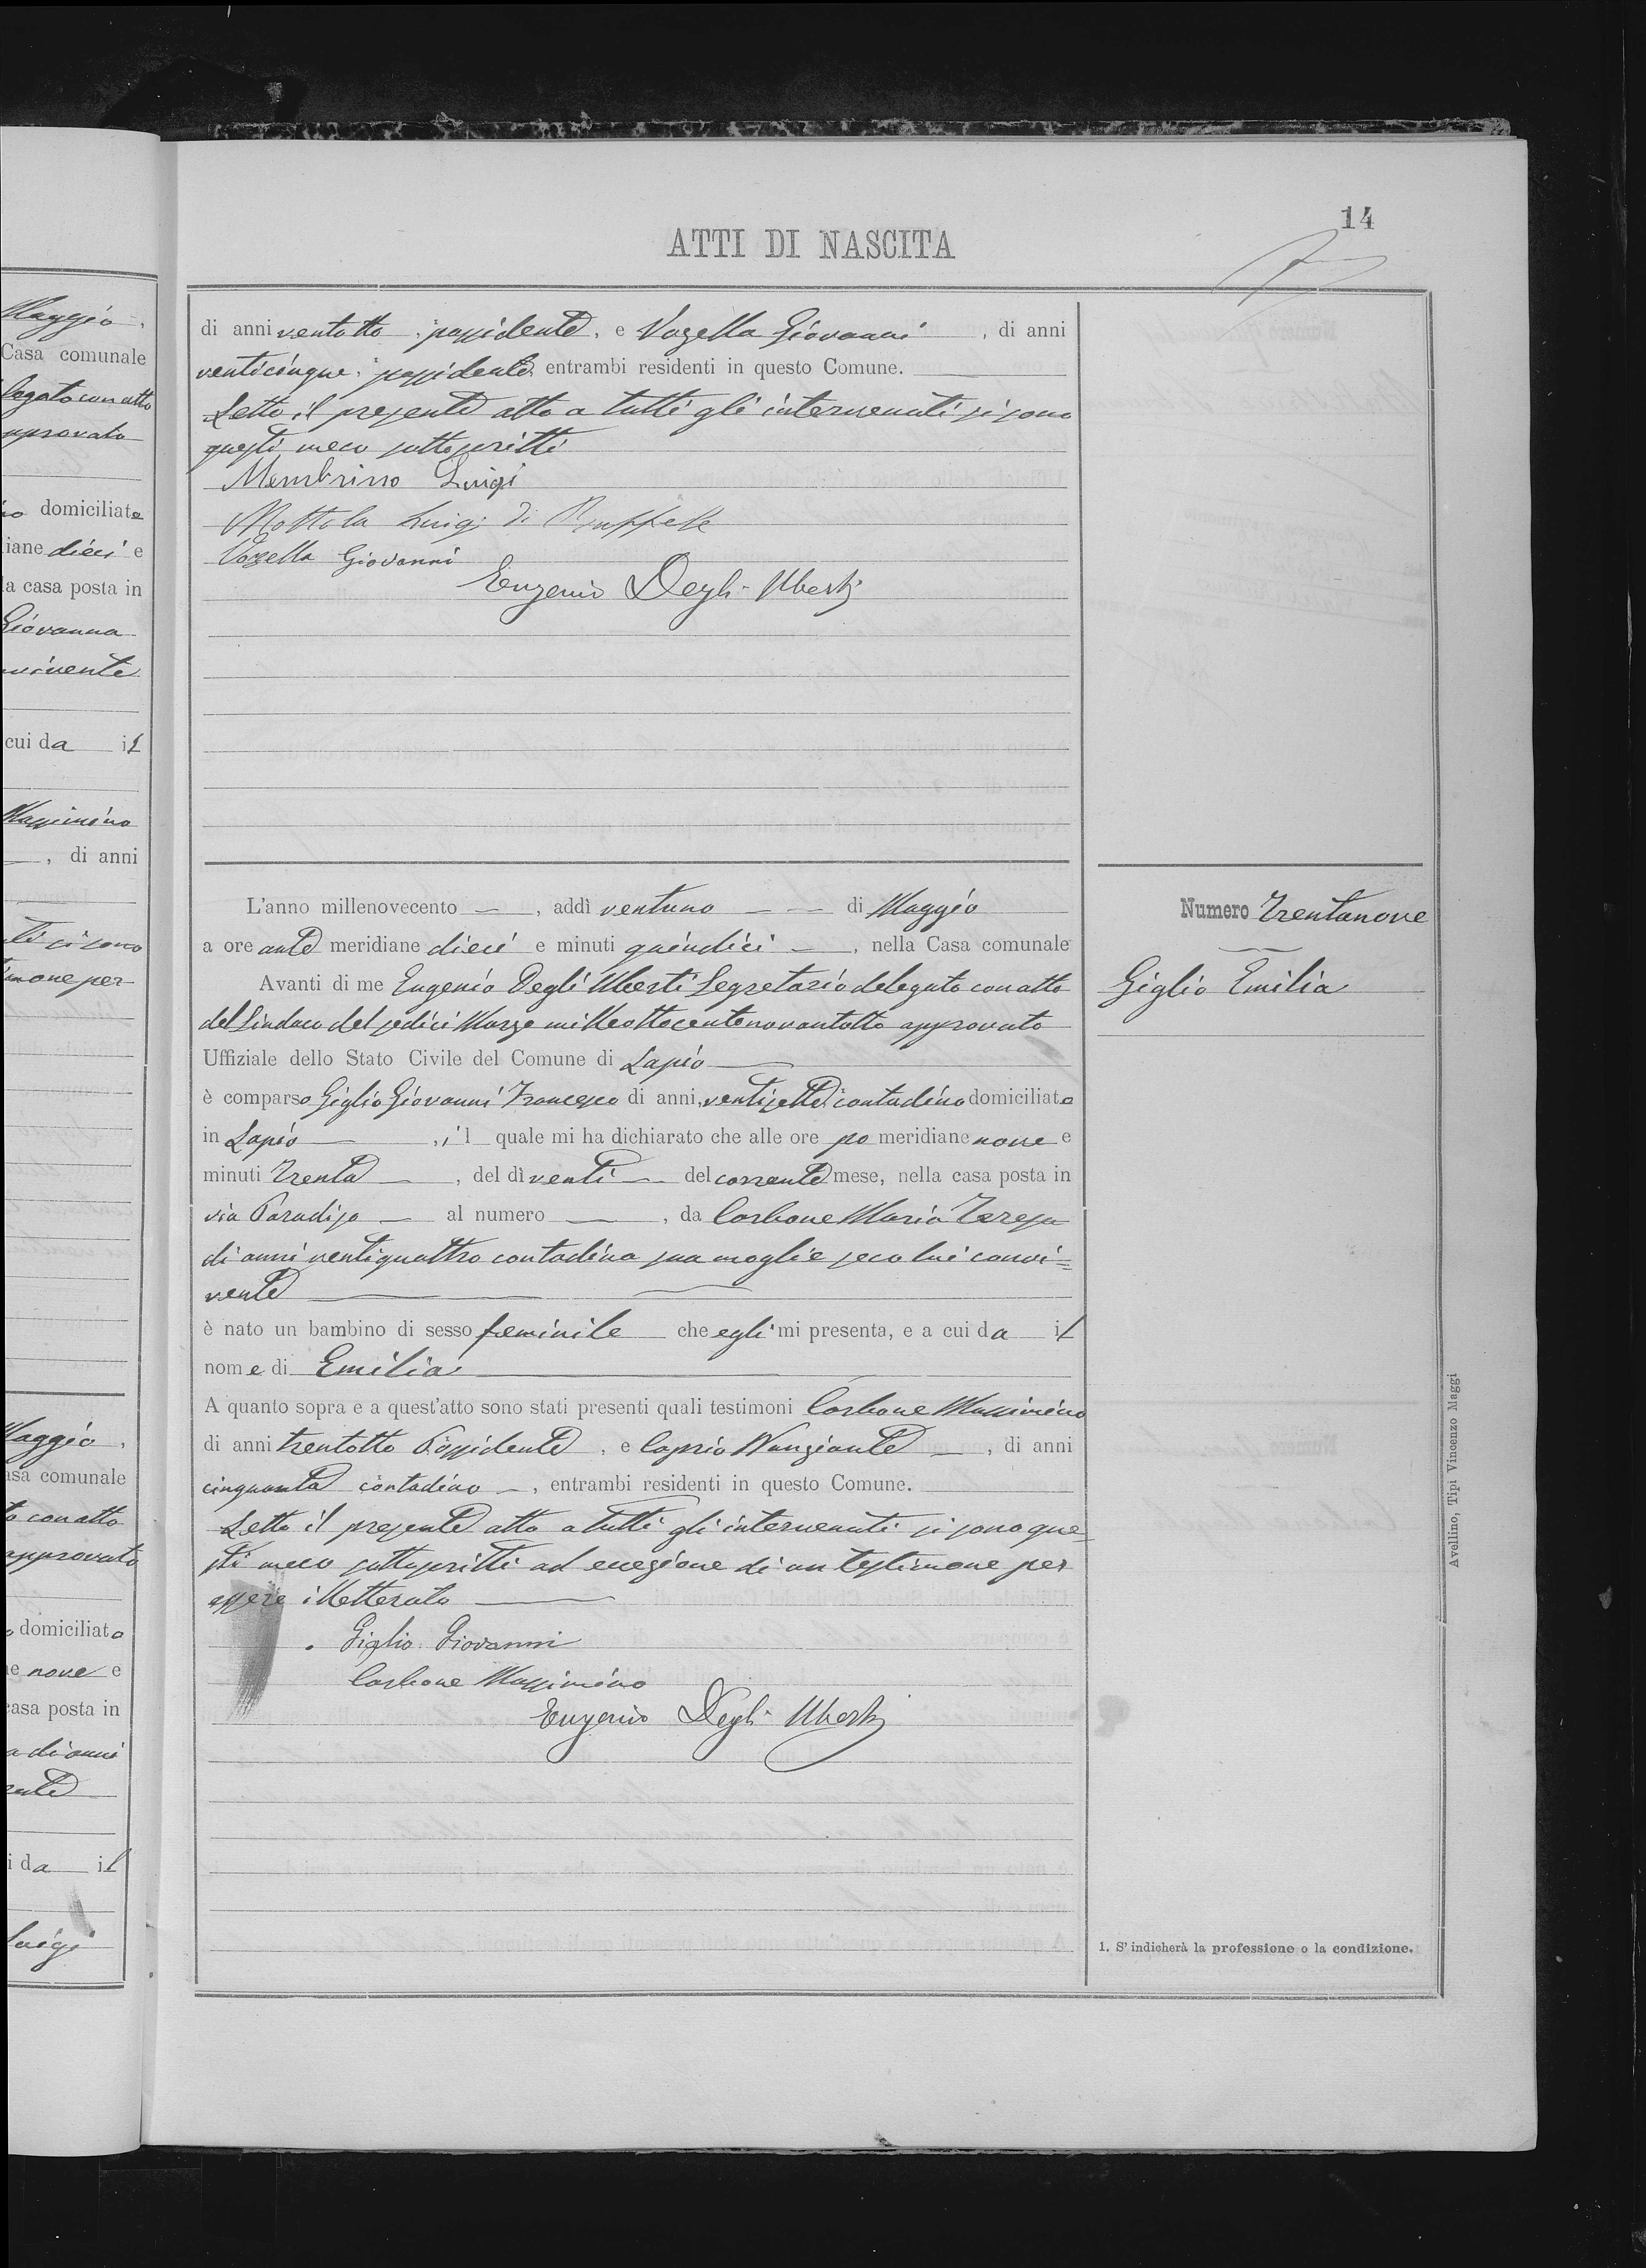 14
ATTI DI NASCITA
Maggio,
Casa comunale
legato con atto
approvato
domiciliato
iane dieci e
a casa posta in
Giovanna
vivente
cui da il
Massimino
, di anni
ti si sono
imone per
Maggio,
asa comunale
to con atto
approvato
domiciliato
ne nove e
casa posta in
a di anni
ente
i da il
Luigi
di anni ventotto, possidente, e Vozella Giovanni, di anni
venticinque, possidente, entrambi residenti in questo Comune.
Letto il presente atto a tutti gli intervenuti si sono
questi meco sottoscritti
Membrino Luigi
Mottola Luigi di
Vozella Giovanni
Eugenio Degli Uberti
L'anno millenovecento — , addì ventuno — — di Maggio
a ore ante meridiane dieci e minuti quindici — , nella Casa comunale
Avanti di me Eugenio Degli Uberti Segretario delegato con atto
del Sindaco del sedici Marzo milleottocentonovantotto approvato
Uffiziale dello Stato Civile del Comune di Lapio
è comparso Giglio Giovanni Francesco di anni, ventisette, contadino domiciliato
in Lapio — , il quale mi ha dichiarato che alle ore po meridiane nove e
minuti trenta — , del dì venti — del corrente mese, nella casa posta in
via Paradiso — al numero — , da Carbone Maria Teresa
di anni ventiquattro contadina sua moglie seco lui convi=
vente
è nato un bambino di sesso feminile che egli mi presenta, e a cui da il
nome di Emilia
A quanto sopra e a quest'atto sono stati presenti quali testimoni Carbone Massimino
di anni trentotto Possidente, e Caprio Nunziante — , di anni
cinquanta contadino — , entrambi residenti in questo Comune.
Letto il presente atto a tutti gli intervenuti si sono que=
sti meco sottoscritti ad eccezione di un testimone per
essere illetterato
Giglio Giovanni
Carbone Massimino
Eugenio Degli Uberti
Numero Trentanove
Giglio Emilia
1. S'indicherà la professione o la condizione.
Avellino, Tipi Vincenzo Maggi